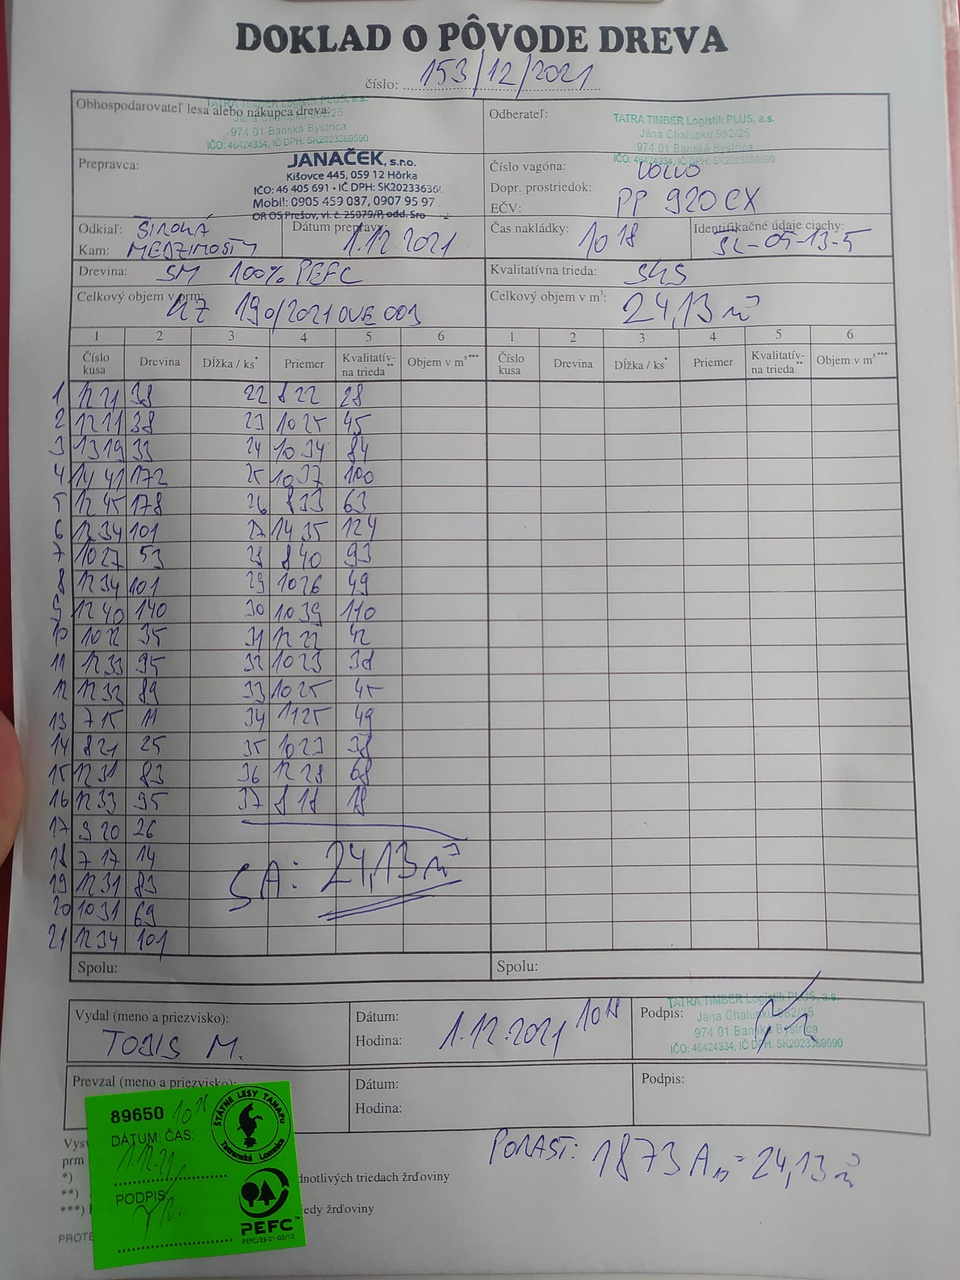 DOKLAD O PÔVODE DREVA
číslo: 153/12/2021
Obhospodarovateľ lesa alebo nákupca dreva:
TATRA TIMBER Logistik PLUS, a.s.
Jána Chalupku 982/25
974 01 Banská Bystrica
IČO: 46424334, IČ DPH: SK2023369590
Odberateľ:
TATRA TIMBER Logistik PLUS, a.s.
Jána Chalupku 982/25
974 01 Banská Bystrica
IČO: 46424334, IČ DPH: SK2023369590
Prepravca:
JANAČEK, s.r.o.
Kišovce 445, 059 12 Hôrka
IČO: 46 405 691 • IČ DPH: SK20233636
Mobil: 0905 459 087, 0907 95 97
OR OS Prešov, vl. č. 25079/P, odd. Sro
Číslo vagóna:
Dopr. prostriedok: VOLVO
EČV: PP 920 CX
Odkiaľ: ŠIROKÁ
Kam: MEDZIMOSTY
Dátum prepravy: 1.12.2021
Čas nakládky: 10 18
Identifikačné údaje ciachy: SL-05-13-5
Drevina: SM 100% PEFC
Kvalitatívna trieda:
Celkový objem v prm: 190/2021 OVE 003
Celkový objem v m³: 24,13 m³
1 2 3 4 5 6 1 2 3 4 5 6
Číslo kusa Drevina Dĺžka / ks* Priemer Kvalitatív-na trieda** Objem v m³*** Číslo kusa Drevina Dĺžka / ks* Priemer Kvalitatív-na trieda** Objem v m³***
1 12 21 38 22 8 22 28
2 12 21 38 23 10 25 45
3 13 19 33 24 10 34 84
4 14 41 172 25 10 37 100
5 12 45 178 26 8 33 63
6 12 34 101 27 14 35 124
7 10 27 53 28 8 40 93
8 12 34 101 29 10 26 49
9 12 40 140 30 10 39 110
10 10 22 35 31 12 22 42
11 12 33 95 32 10 23 38
12 12 32 89 33 10 25 45
13 7 15 11 34 11 25 49
14 8 21 25 35 10 23 38
15 12 31 83 36 12 28 68
16 12 33 95 37 8 18 18
17 9 20 26
18 7 17 14
19 12 31 83
20 10 31 69
21 12 34 101
SA: 24,13 m³
Spolu: Spolu:
Vydal (meno a priezvisko):
TOBIS M.
Dátum:
Hodina: 1.12.2021 10 18
Podpis:
TATRA TIMBER Logistik PLUS, a.s.
Jána Chalupku 982/25
974 01 Banská Bystrica
IČO: 46424334, IČ DPH: SK2023369590
Prevzal (meno a priezvisko):
Dátum:
Hodina:
Podpis:
89650
DÁTUM: ČAS:
PODPIS:
ŠTÁTNE LESY TANAPU
Tatranská Lomnica
PEFC™
PEFC/23-21-03/10
prm
*) dnotlivých triedach žrďoviny
**)
***) edy žrďoviny
PORAST: 1873 A = 24,13 m³